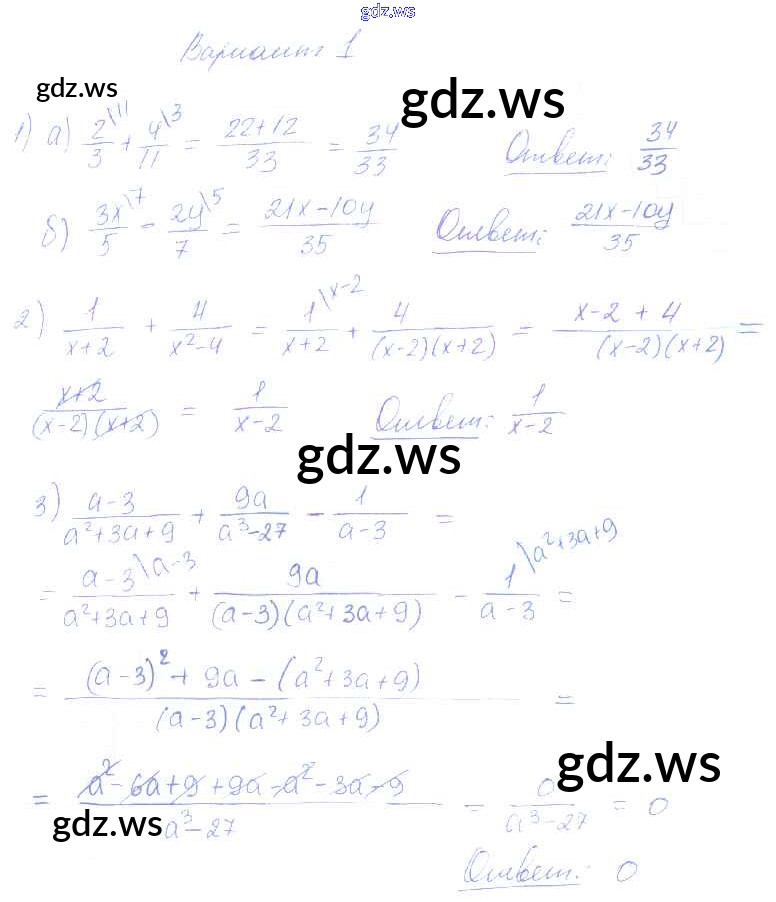 gdz.ws
Вариант 1
gdz.ws
gdz.ws
1) а) 2/3 \11 + 4/11 \3 = (22+12)/33 = 34/33 Ответ: 34/33
б) 3x/5 \7 - 2y/7 \5 = (21x-10y)/35 Ответ: (21x-10y)/35
2) 1/(x+2) + 4/(x²-4) = 1/(x+2) \x-2 + 4/((x-2)(x+2)) = (x-2+4)/((x-2)(x+2)) =
(x+2)/((x-2)(x+2)) = 1/(x-2) Ответ: 1/(x-2)
gdz.ws
3) (a-3)/(a²+3a+9) + 9a/(a³-27) - 1/(a-3) =
= (a-3)/(a²+3a+9) \a-3 + 9a/((a-3)(a²+3a+9)) - 1/(a-3) \a²+3a+9 =
= ((a-3)²+9a-(a²+3a+9))/((a-3)(a²+3a+9)) =
gdz.ws
= (a²-6a+9+9a-a²-3a-9)/(a³-27) = 0/(a³-27) = 0
gdz.ws
Ответ: 0